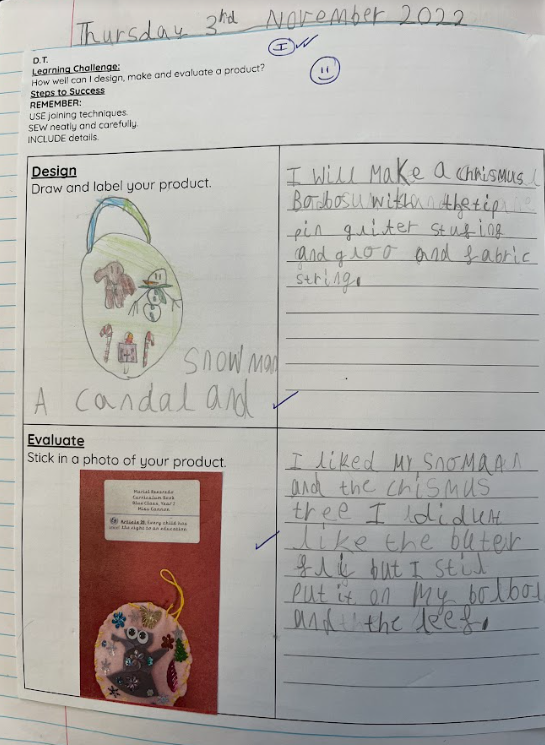 Thursday 3rd November 2022
D.T.
I
Learning Challenge:
How well can I design, make and evaluate a product?
Steps to Success
REMEMBER:
USE joining techniques.
SEW neatly and carefully.
INCLUDE details.
Design
Draw and label your product.
snowman
A candal and
I will make a chrismus
with the
pin guiter stufing
and gloo and fabric
string.
Evaluate
Stick in a photo of your product.
Curriculum Book
Article 28: Every child has
the right to an education
I liked my snomaan
and the chismus
tree I didunt
like the buter
fliy but I stil
put it on my bolbol
and the leef.